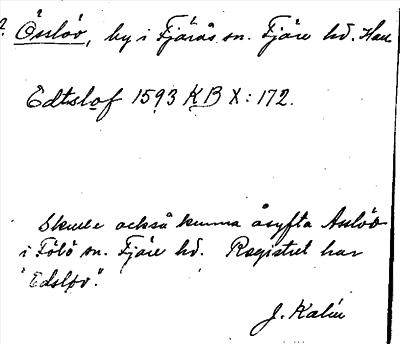 ? Össlöv, by i Fjärås sn. Fjäre hd. Hall
Edtslof 1593 KB X: 172.
Skulle också kunna åsyfta Anlöv
i Tölö sn. Fjäre hd. Registret har
"Edslöv".
J. Kalén